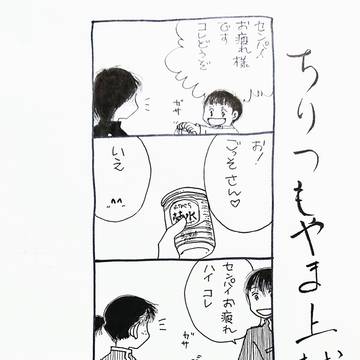 ちりつもやま上
センパイ
お疲れ様
です
コレどうぞ
ガサ
お!
ごっそさん♡
いえ
^^
センパイお疲れ
ハイ コレ
ガサ